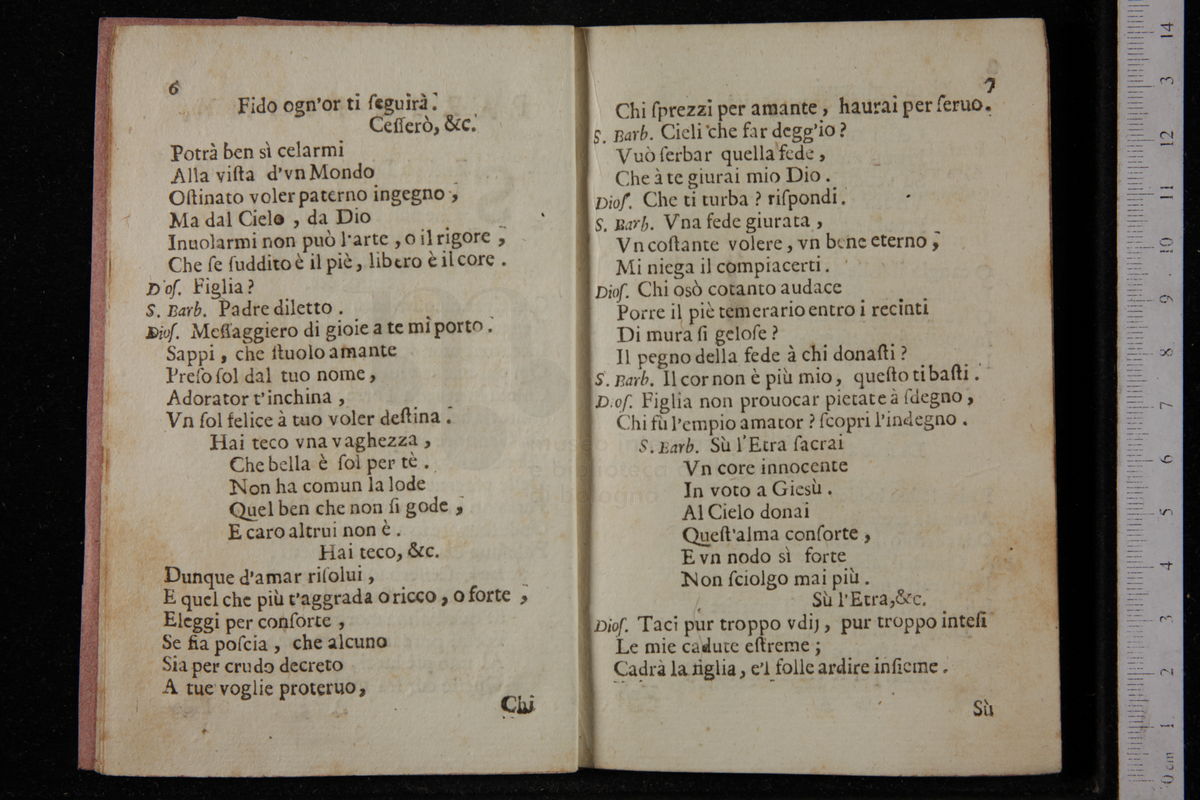 6
Fido ogn'or ti ſeguirà.
Ceſſerò, &c.
Potrà ben sì celarmi
Alla viſta d'vn Mondo
Oſtinato voler paterno ingegno,
Ma dal Cielo, da Dio
Inuolarmi non può l'arte, o il rigore;
Che ſe ſuddito è il piè, libero è il core.
Dioſ. Figlia?
S. Barb. Padre diletto.
Dioſ. Meſſaggiero di gioie a te mi porto.
Sappi, che ſtuolo amante
Preſo ſol dal tuo nome,
Adorator t'inchina,
Vn ſol felice à tuo voler deſtina.
Hai teco vna vaghezza,
Che bella è ſol per tè.
Non ha comun la lode
Quel ben che non ſi gode,
E caro altrui non è.
Hai teco, &c.
Dunque d'amar riſolui,
E quel che più t'aggrada o ricco, o forte,
Eleggi per conſorte,
Se fia poſcia, che alcuno
Sia per crudo decreto
A tue voglie proteruo,
Chi
7
Chi ſprezzi per amante, haurai per ſeruo.
S. Barb. Cieli che far degg'io?
Vuò ſerbar quella fede,
Che à te giurai mio Dio.
Dioſ. Che ti turba? riſpondi.
S. Barb. Vna fede giurata,
Vn coſtante volere, vn bene eterno,
Mi niega il compiacerti.
Dioſ. Chi osò cotanto audace
Porre il piè temerario entro i recinti
Di mura ſi geloſe?
Il pegno della fede à chi donaſti?
S. Barb. Il cor non è più mio, queſto ti baſti.
Dioſ. Figlia non prouocar pietate à ſdegno,
Chi fù l'empio amator? ſcopri l'indegno.
S. Barb. Sù l'Etra ſacrai
Vn core innocente
In voto a Giesù.
Al Cielo donai
Queſt'alma conſorte,
E vn nodo sì forte
Non ſciolgo mai più.
Sù l'Etra, &c.
Dioſ. Taci pur troppo vdij, pur troppo inteſi
Le mie cadute eſtreme;
Cadrà la figlia, e'l folle ardire inſieme.
Sù
museo
e biblioteca
di bologna
14
3
12
11
10
9
8
7
6
5
4
3
2
1
0 cm